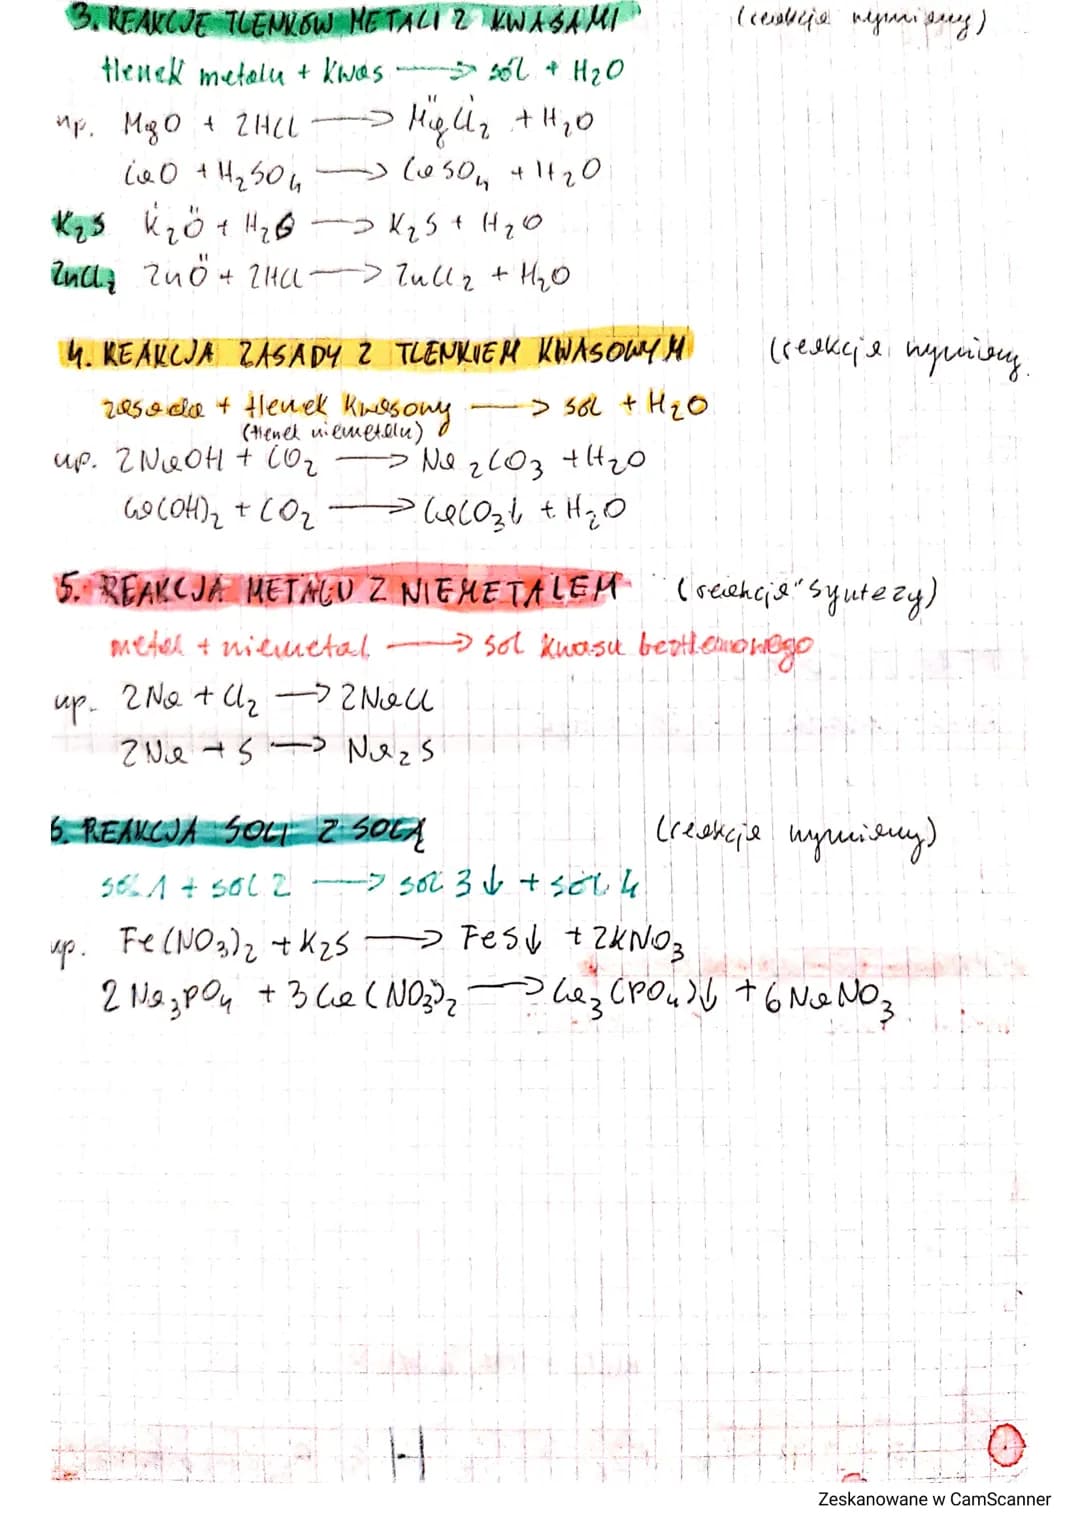 3. REAKCJE TLENKÓW METALI Z KWASAMI (reakcja wymiany)
tlenek metalu + kwas → sól + H₂O
np. MgO + 2HCl → MgCl₂ + H₂O
CaO + H₂SO₄ → CaSO₄ + H₂O
K₂S K₂O + H₂S → K₂S + H₂O
ZnCl₂ ZnO + 2HCl → ZnCl₂ + H₂O
4. REAKCJA ZASADY Z TLENKIEM KWASOWYM (reakcja wymiany
zasada + tlenek kwasowy → sól + H₂O
(tlenek niemetalu)
np. 2NaOH + CO₂ → Na₂CO₃ + H₂O
Ca(OH)₂ + CO₂ → CaCO₃↓ + H₂O
5. REAKCJA METALU Z NIEMETALEM (reakcja syntezy)
metal + niemetal → sól kwasu beztlenowego
np. 2Na + Cl₂ → 2NaCl
2Na + S → Na₂S
6. REAKCJA SOLI Z SOLĄ (reakcja wymiany)
sól 1 + sól 2 → sól 3↓ + sól 4
np. Fe(NO₃)₂ + K₂S → FeS↓ + 2KNO₃
2Na₃PO₄ + 3Ca(NO₃)₂ → Ca₃(PO₄)↓ + 6NaNO₃
H
Zeskanowane w CamScanner